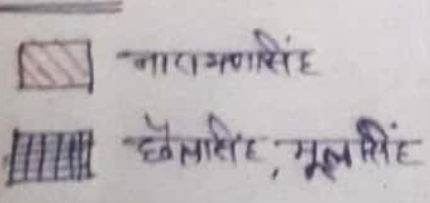 नारायणसिंह
छैलसिंह, मूलसिंह